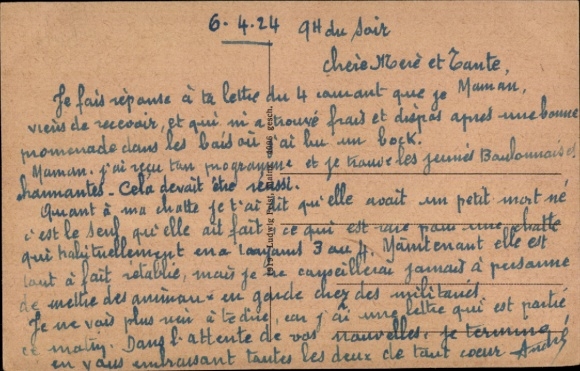 6. 4. 24 9H du Soir
Chère Mère et Tante,
Je fais réponse à ta lettre du 4 courant que je Maman,
viens de recevoir, et qui m'a trouvé frais et dispos apres une bonne
promenade dans les bois où j'ai bu un bock.
Maman. j'ai reçu ton programme et je trouve les jeunes Boulonnaises
charmantes. Cela devait être réussi.
Quant à ma chatte je t'ai dit qu'elle avait un petit mort né
c'est le seul qu'elle ait fait, ce qui est rare pour une chatte
qui habituellement en a toujours 3 ou 4. Maintenant elle est
tout à fait rétablie, mais je ne conseillerai jamais à personne
de mettre des animaux en garde chez des militaires
Je ne vais plus rien à te dire, car j'ai une lettre qui est partie
ce matin. Dans l'attente de vos nouvelles, je termine
en vous embrassant toutes les deux de tout coeur André
Ludwig Feist, Mainz. gesch.